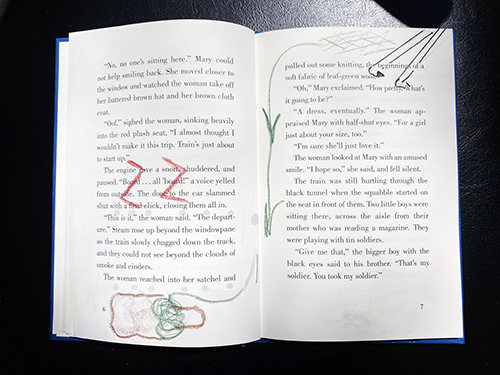 “No, no one’s sitting here.” Mary could
not help smiling back. She moved closer to
the window and watched the woman take off
her battered brown hat and her brown cloth
coat.
“Oof,” sighed the woman, sinking heavily
into the red plush seat, “I almost thought I
wouldn’t make this trip. Train’s just about
to start up.”
The engine gave a snort, shuddered, and
paused. “Board . . . all ’board!” a voice yelled
from outside. The door to the car slammed
shut with a final click, closing them all in.
“This is it,” the woman said. “The depart-
ure.” Steam rose up beyond the windowpane
as the train slowly chugged down the track,
and they could not see beyond the clouds of
smoke and cinders.
The woman reached into her satchel and
6
pulled out some knitting, the beginnings of a
soft fabric of leaf-green wool.
“Oh,” Mary exclaimed. “How pretty. What’s
it going to be?”
“A dress, eventually.” The woman ap-
praised Mary with half-shut eyes. “For a girl
just about your size, too.”
“I’m sure she’ll just love it.”
The woman looked at Mary with an amused
smile. “I hope so,” she said, and fell silent.
The train was still hurtling through the
black tunnel when the squabble started on
the seat in front of them. Two little boys were
sitting there, across the aisle from their
mother who was reading a magazine. They
were playing with tin soldiers.
“Give me that,” the bigger boy with the
black eyes said to his brother. “That’s my
soldier. You took my soldier.”
7